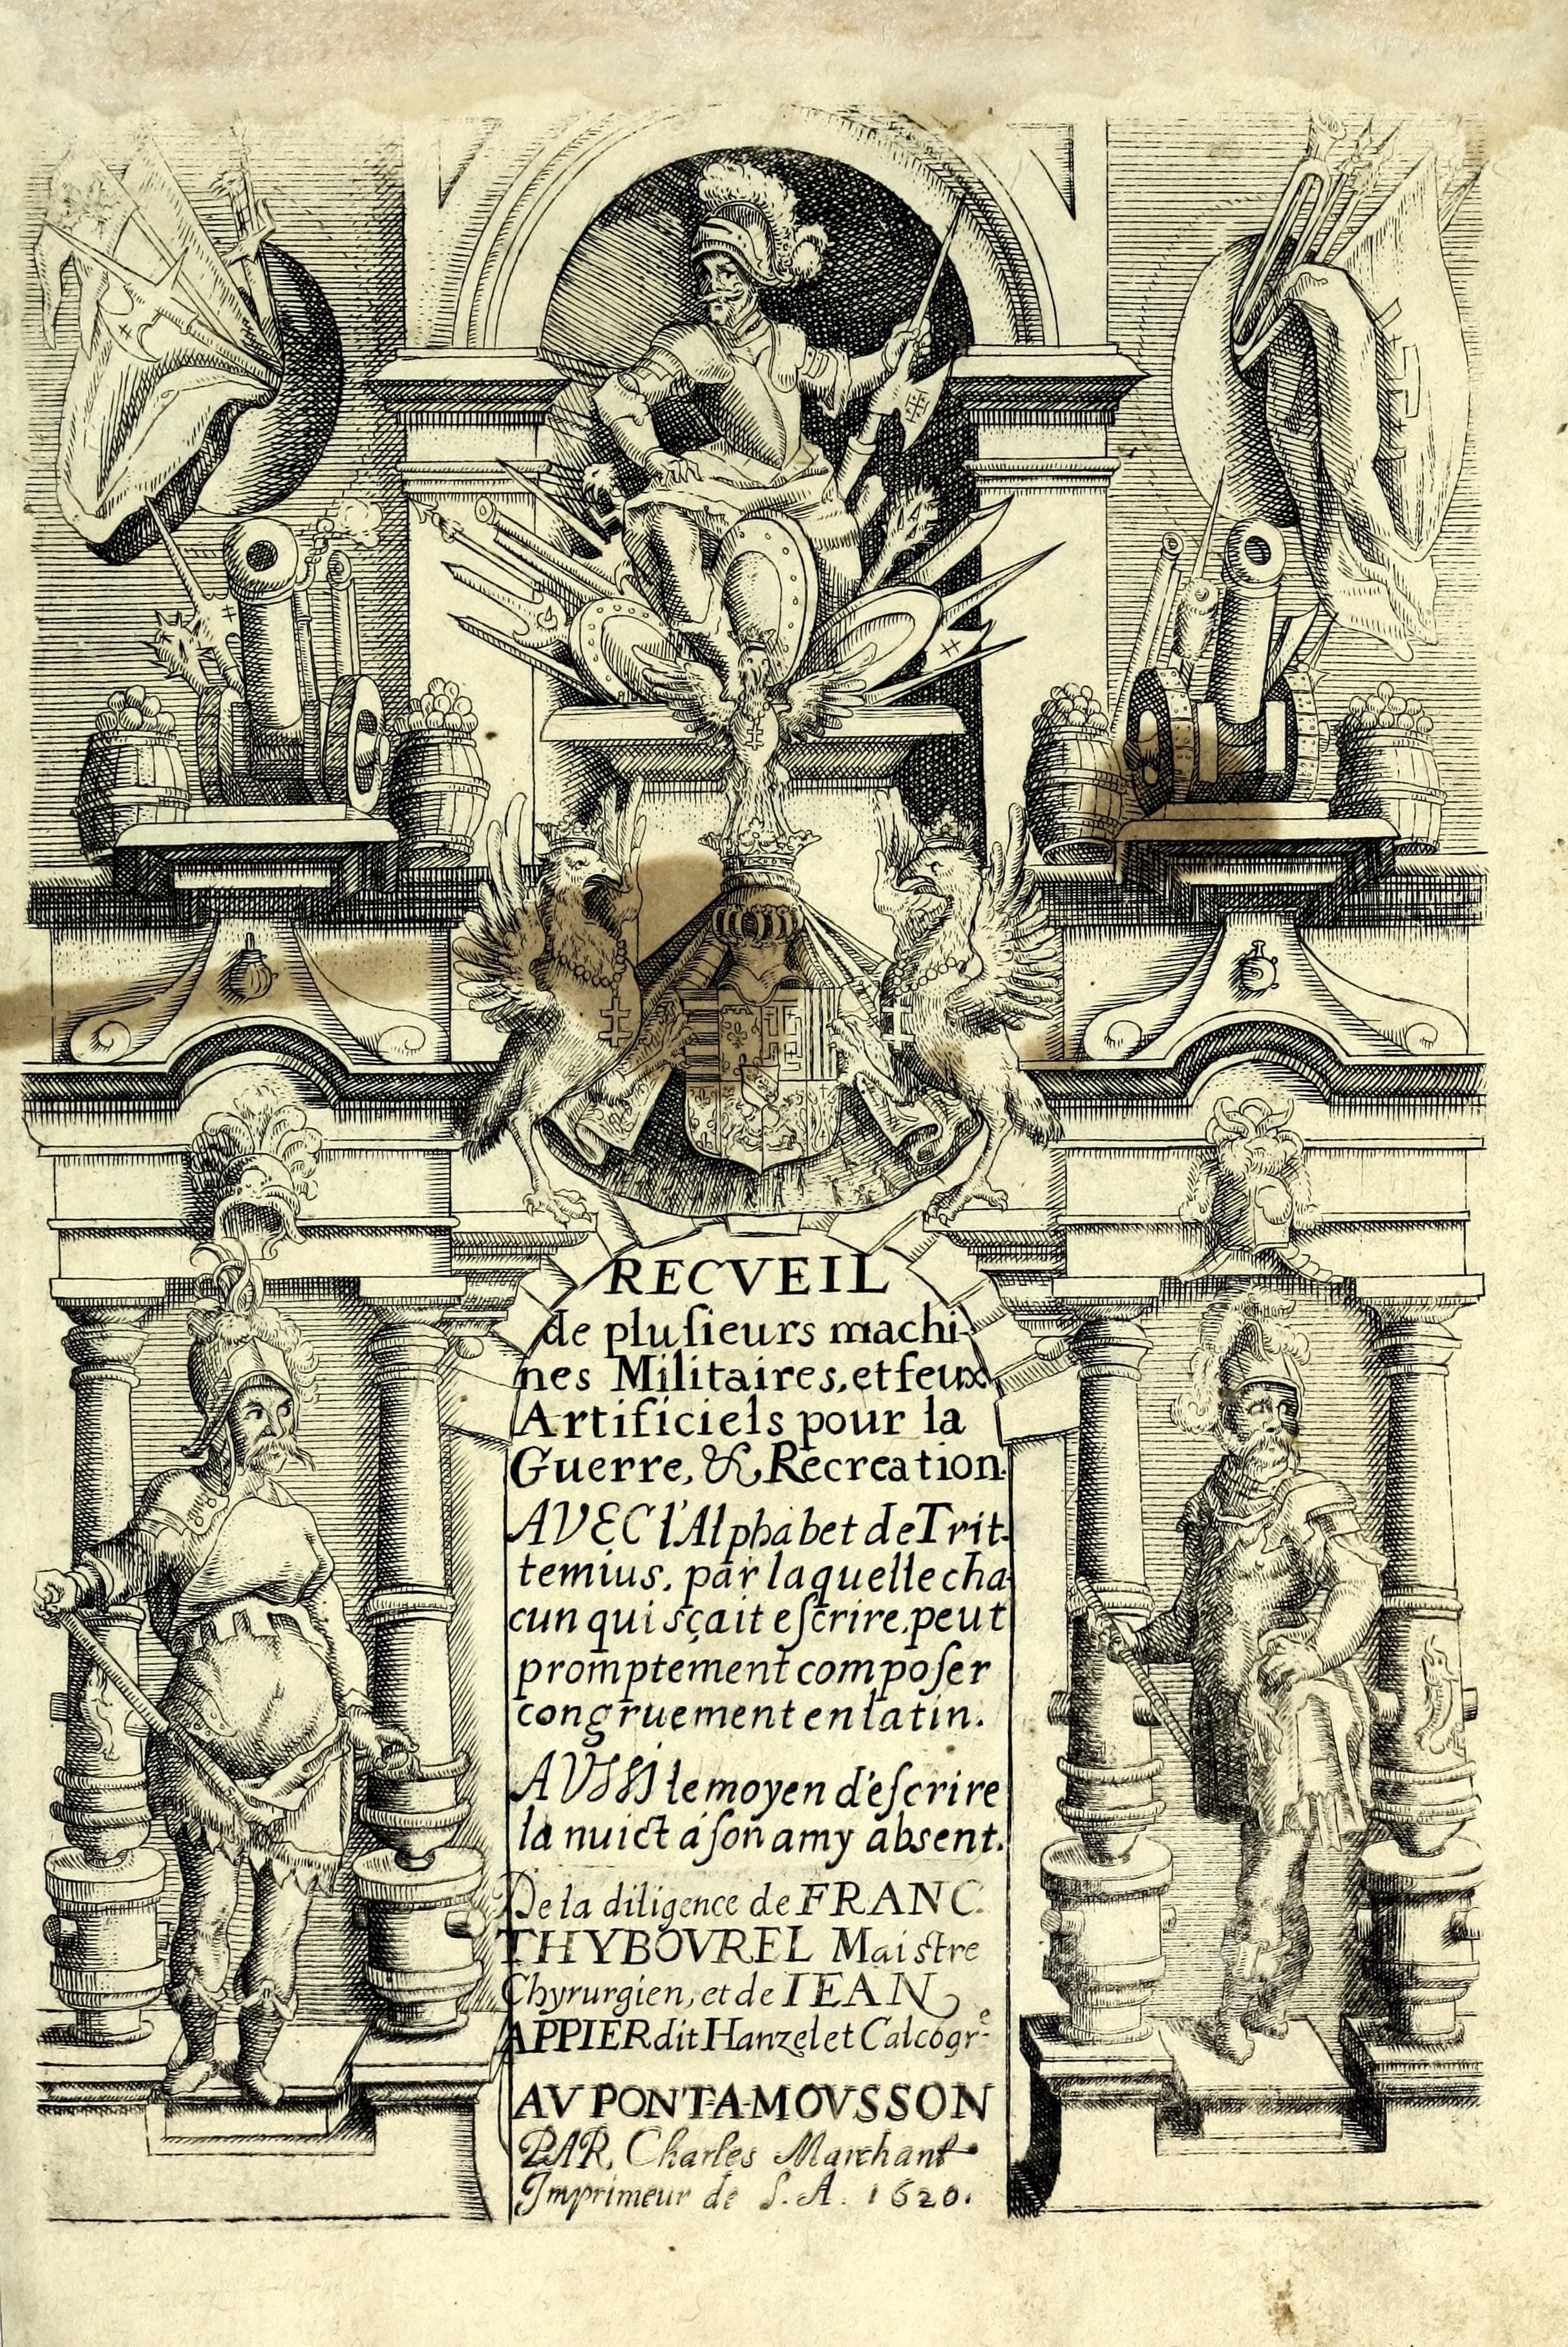 RECVEIL
de pluſieurs machi-
nes Militaires, et feux
Artificiels pour la
Guerre, & Recreation.
AVEC l'Alphabet de Trit-
temius, par laquelle cha
cun qui sçait eſcrire, peut
promptement compoſer
congruement en latin.
AVSSI le moyen d'eſcrire
la nuict á ſon amy absent.
De la diligence de FRANC.
THYBOVREL Maistre
Chyrurgien, et de IEAN
APPIER dit Hanzelet Calcogr.e
AV PONT-A-MOVSSON
PAR Charles Marchant
Imprimeur de S. A. 1620.